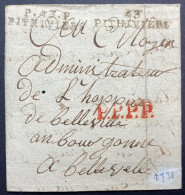 P.43.P.
PITHIVIERS
43
PITHIVIERS
Au Citoyen
administrateur
de L'hoppice
de belleville
P.P.P.P.
en bourgogne
a belleville